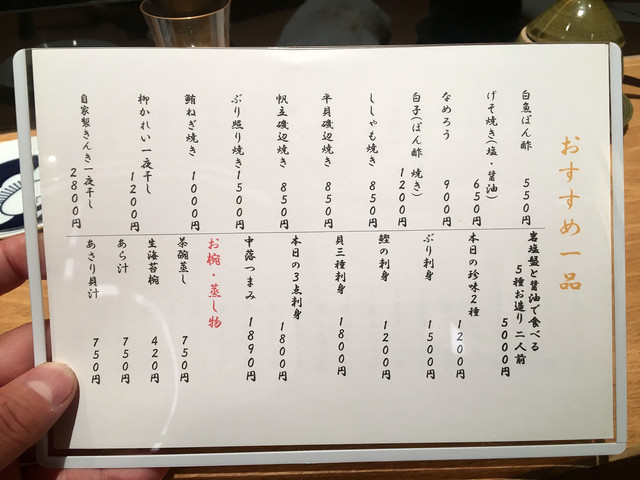 おすすめ一品
白魚ぽん酢 550円
げそ焼き(塩・醤油) 650円
なめろう 900円
白子(ぽん酢 焼き) 1200円
ししゃも焼き 850円
平貝磯辺焼き 850円
帆立磯辺焼き 850円
ぶり照り焼き 1500円
鮪ねぎ焼き 1000円
柳かれい一夜干し 1200円
自家製きんき一夜干し 2800円
岩塩盤と醤油で食べる
5種お造り 二人前 5000円
本日の珍味2種 1200円
ぶり刺身 1500円
鰹の刺身 1200円
貝三種刺身 1800円
本日の3点刺身 1800円
中落つまみ 1890円
お椀・蒸し物
茶碗蒸し 750円
生海苔椀 420円
あら汁 750円
あさり貝汁 750円